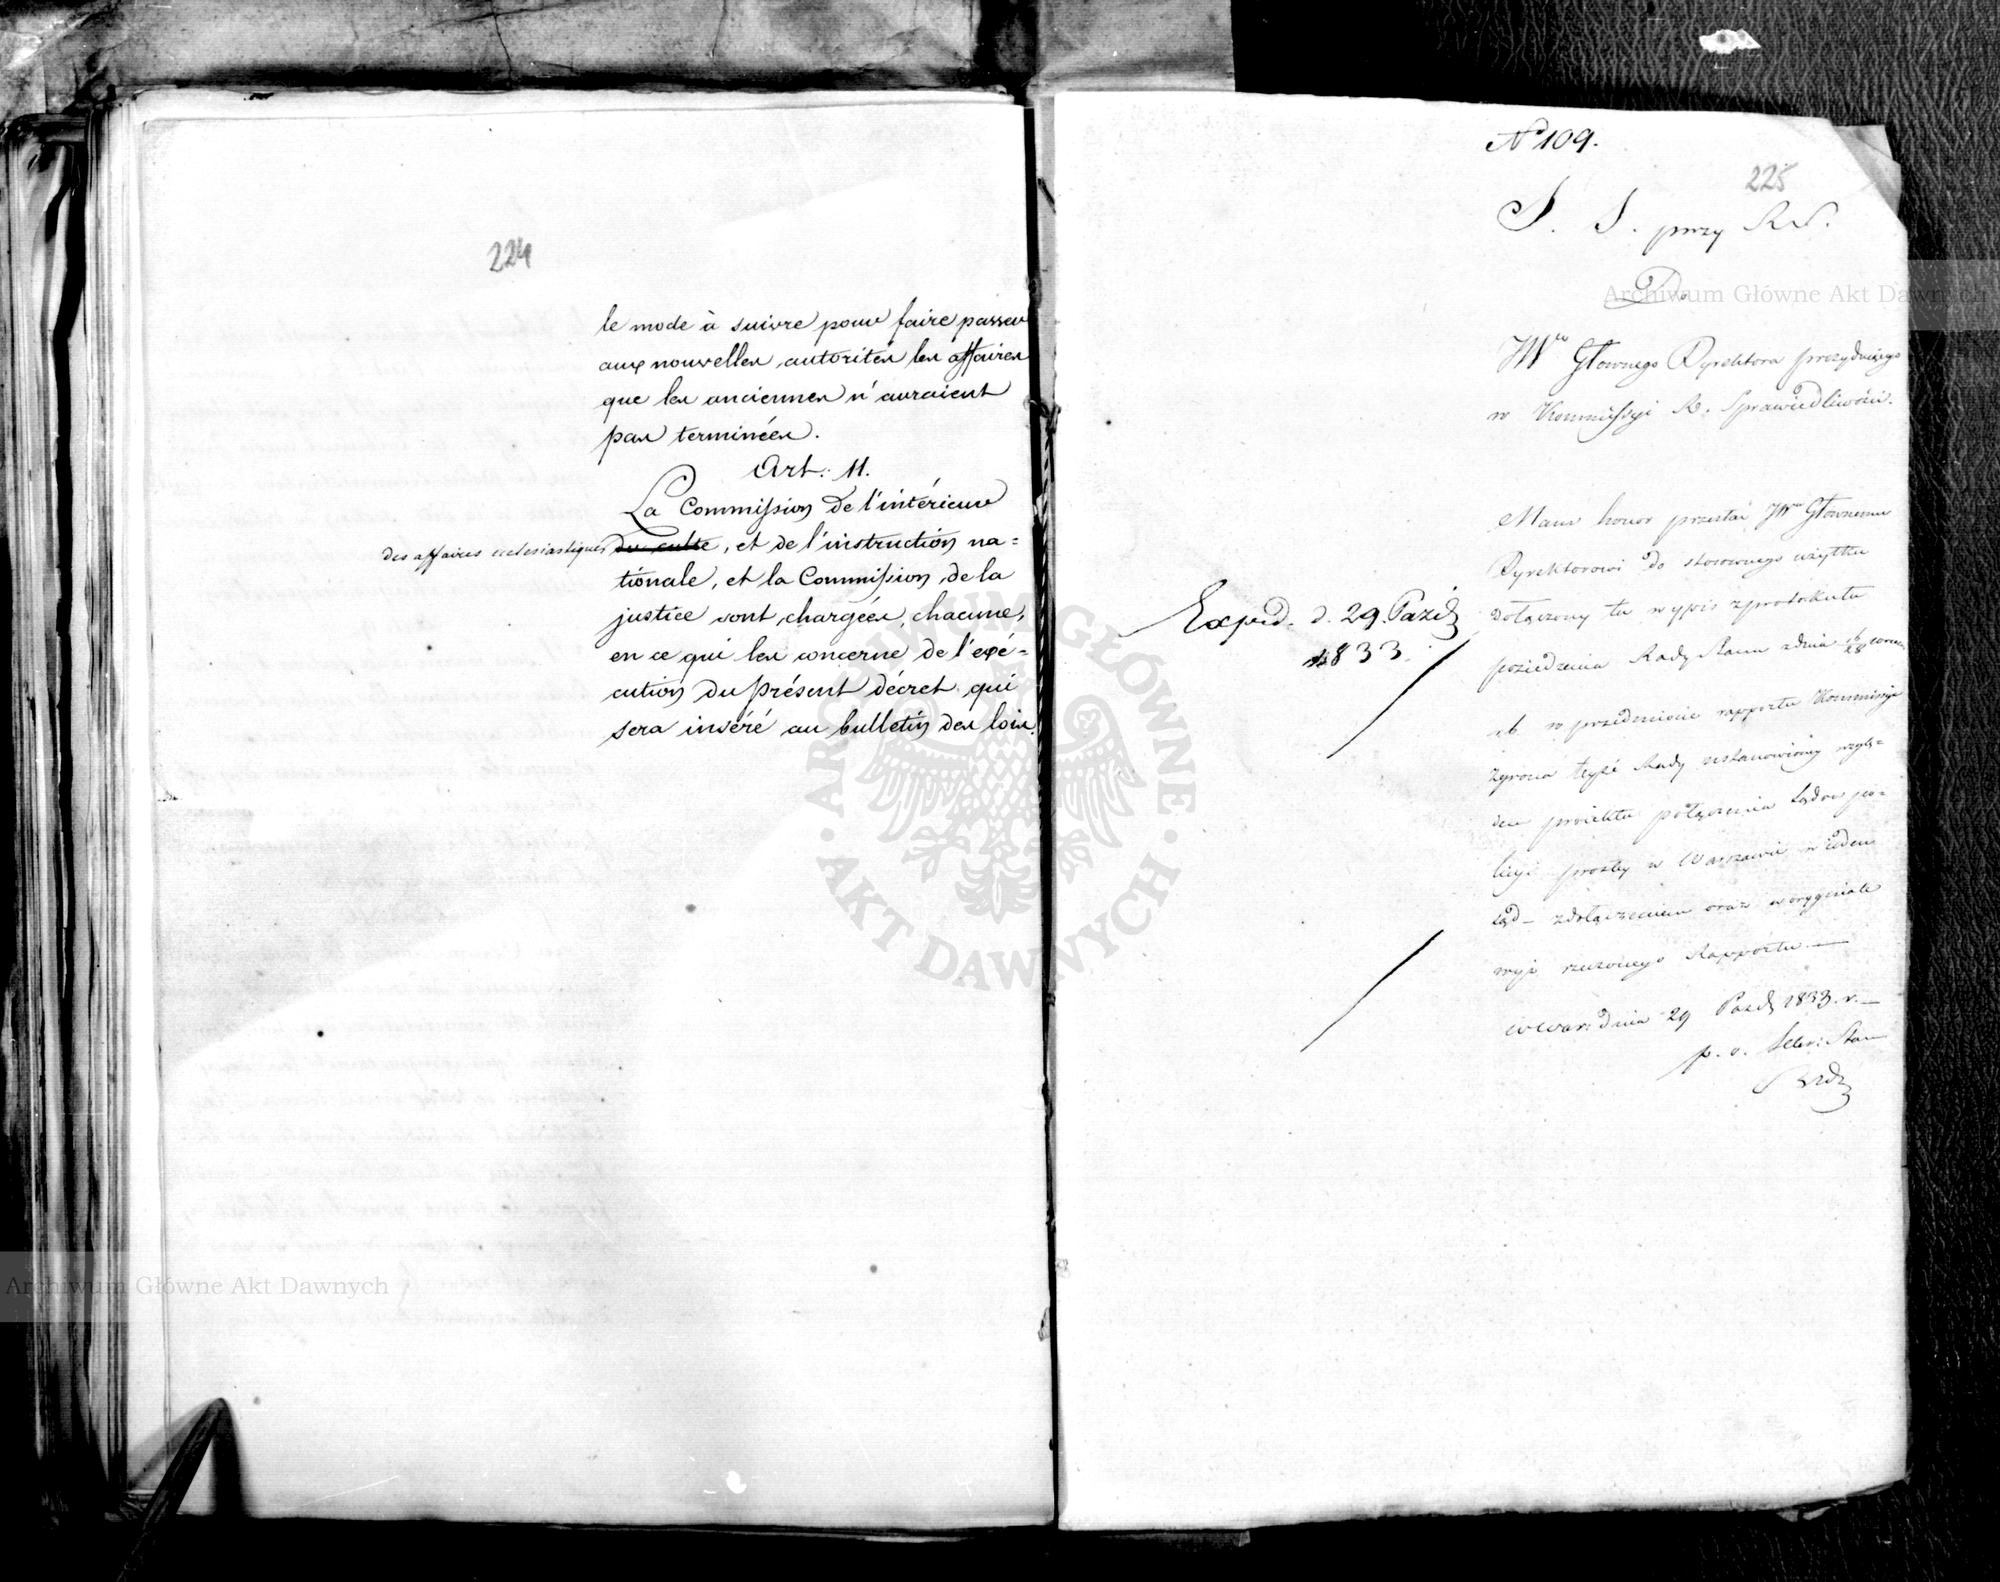 224
le mode à suivre pour faire passer
aux nouvelles autorités les affaires
que les anciennes n'auraient
pas terminées.
Art: 11.
La Commission de l'intérieur
des affaires ecclesiastiques du culte, et de l'instruction na=
tionale, et la Commission de la
justice sont chargées, chacune,
en ce qui les concerne de l'exé=
cution du présent décret qui
sera inséré au bulletin des lois.
N 109.
225
S. S. przy R S.
Do
JWgo Głownego Dyrektora prezyduiącego
w Kommissyi R. Sprawiedliwości.
Mam honor przesłać JWmu Głownemu
Dyrektorowi do stosownego użytku
dołączony tu wypis z protokułu
posiedzenia Rady Stanu z dnia 16/28
w przedmiocie rapportu Kommissyi
z grona teyże Rady ustanowioney wzglę=
dem proiektu połączenia Sądow po=
licyi prostey w Warszawie w ieden
Sąd – z dołączeniem oraz w oryginale
wyż rzeczonego Rapportu. —
w War: dnia 29 Pazdz 1833. r. —
p. o. Sekr: Stanu
Exped. d. 29. Pazdz
1833.
ARCHIWUM GŁÓWNE
AKT DAWNYCH
Archiwum Główne Akt Dawnych
Archiwum Główne Akt Dawnych